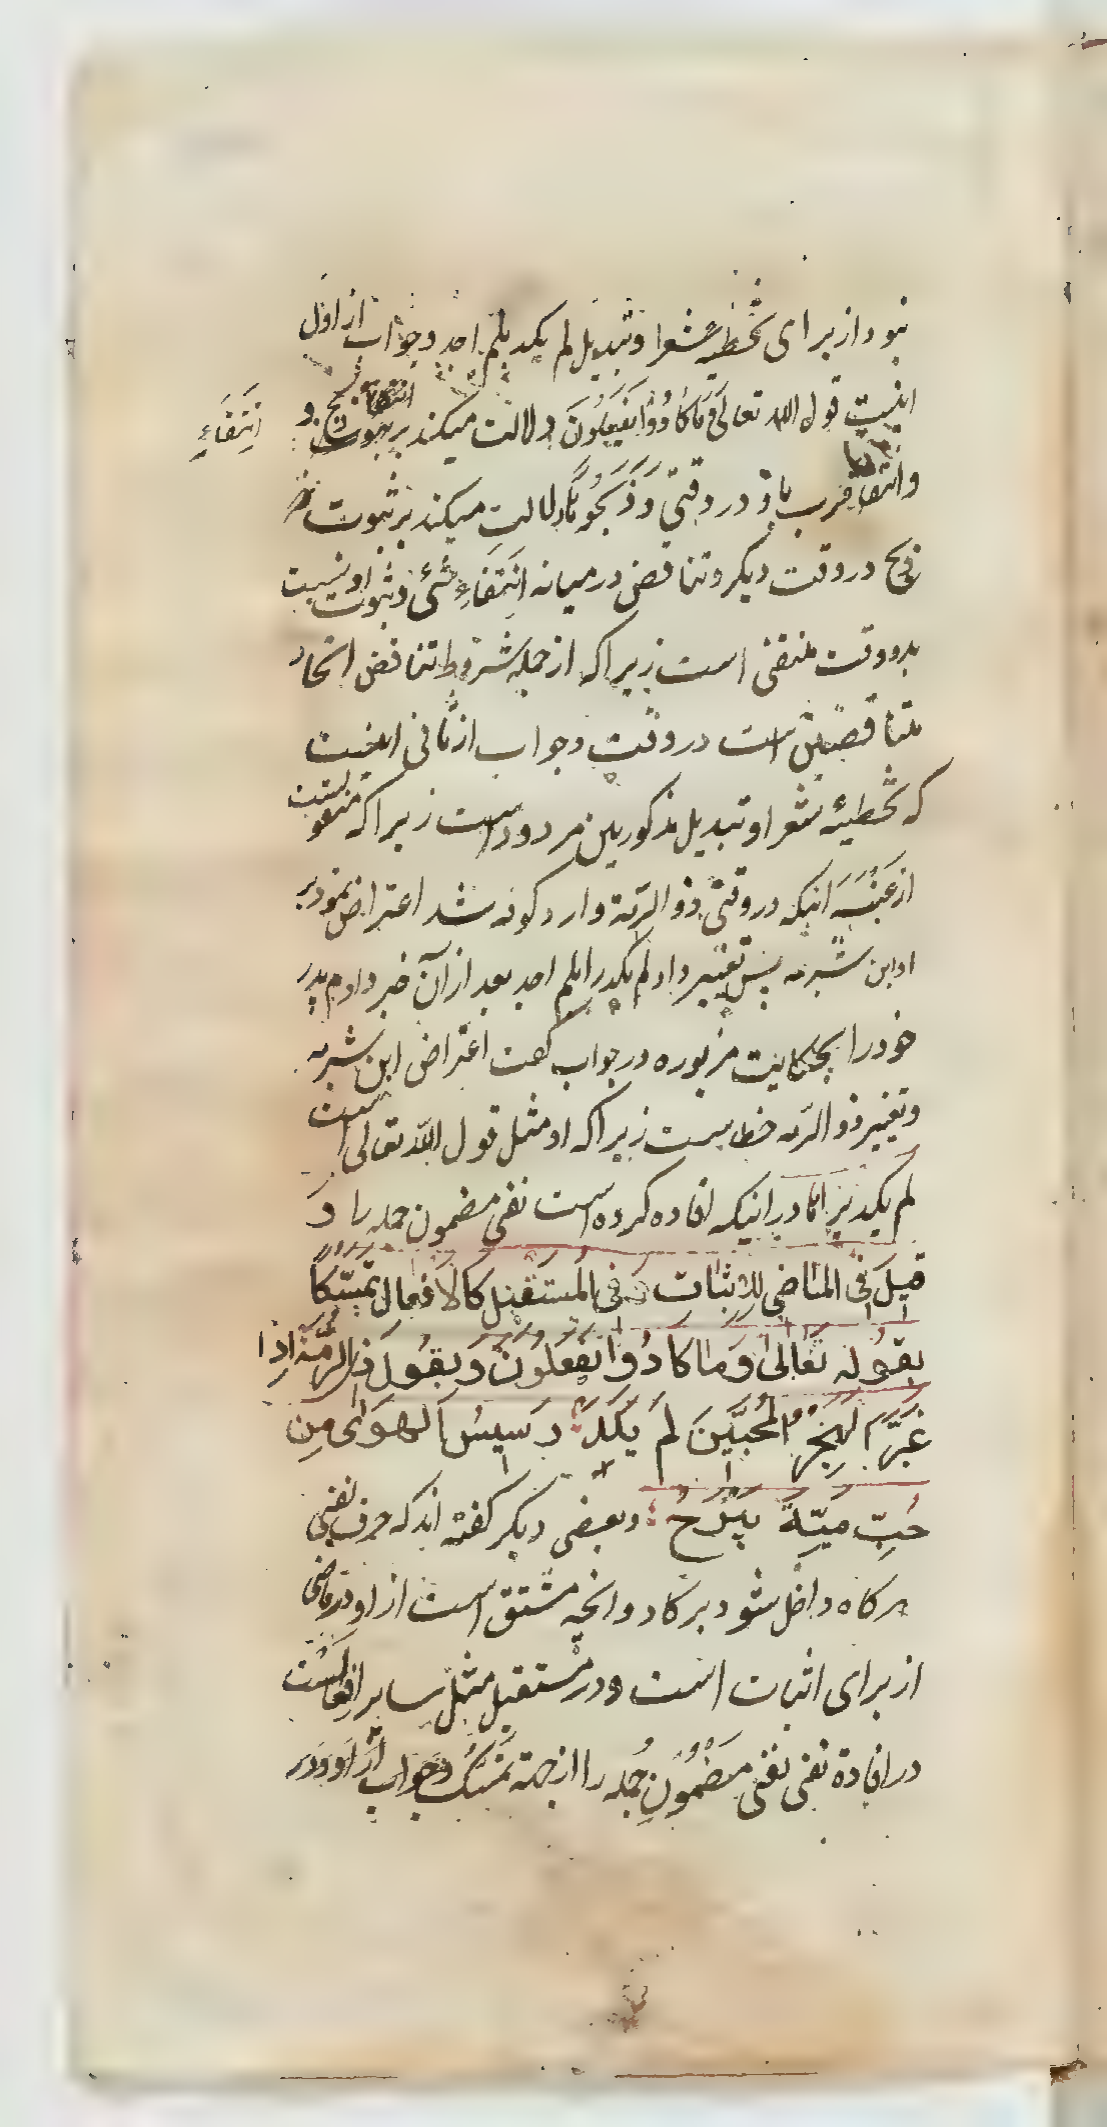 نبود از برای تخطیه شعرا و تبدیل لم یکد بلم اجد و جواب از اول
اینست قول الله تعالی وَمَا کَادُوا یَفعَلُونَ دلالت میکند بر ثبوت ذبح و
اِنتِفَاءِ
وانتفا قرب باو در وقتی وَ فَذَبَحُوهَا دلالت میکند بر ثبوت
ذبح در وقت دیگر و تناقض در میانه اِنتِفَاءِ شئ و ثبوت او نیست
بدو وقت منتفی است زیرا که از جمله شروط تناقض اتحاد
متناقضین است در وقت و جواب از ثانی اینست
که تخطیئه شعرا و تبدیل مذکورین مردود است زیرا که منقولست
از عَنبَسَه اینکه در وقتی ذو الرمة وارد کوفه شد اعتراض نمود بر
او ابن شبرمه پس تغییر داد لم یکد را بلم اجد بعد از آن خبر دادم پدر
خود را بحکایت مزبوره در جواب گفت اعتراض ابن شبرمه
و تغییر ذو الرمه خطاست زیرا که او مثل قول الله تعالی است
لم یکد یریها در اینکه افاده کرده است نفی مضمون جمله را وَ
قیلَ فی الماضی لِلاِثبات وَ فی المُستَقبِل کالاَفعال تَمَسُّکاً
بقوله تَعَالی وَمَا کَادُوا یَفعَلُونَ وَ بِقَولِ ذی الرِمَّة اِذا
غَیَّرَ الهَجرُ المُحِبّینَ لَم یَکَد رَسیسُ الهَوی مِن
حُبِّ مَیَّةَ یَبرَحُ و بعضی دیگر گفته اند که حرف نفی
هرکاه داخل شود بر کاد و انچه مشتق است از او در ماضی
از برای اثبات است و در مستقبل مثل سایر افعالست
در افادة نفی نفی مَضمُونِ جُمله را از جهة تَمَسُّک و جواب از او در